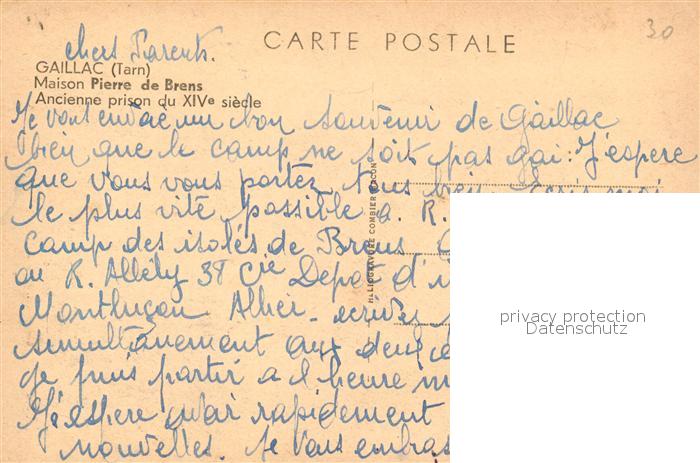 30
CARTE POSTALE
chers Parents.
GAILLAC (Tarn)
Maison Pierre de Brens
Ancienne prison du XIVe siècle
Je vous envoie un bon souvenir de Gaillac
bien que le camp ne soit pas gai. J'espere
que vous vous portez tous bien.
le plus vite possible a. R.
Camp des isolés de Brens
ou R. Allély 38 Cie Depot d'i
Montluçon Allier - ecrivez
simultanement aux deux
Je puis partir a l heure
J'espere avoir rapidement
nouvelles. Je vous embras
HELIOGRAVURE COMBIER MACON
privacy protection
Datenschutz